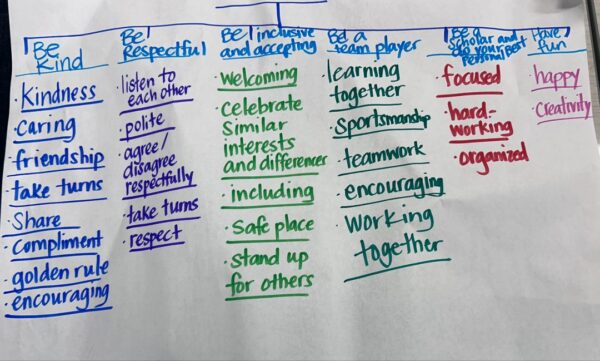 Be
Kind
· Kindness
· Caring
· friendship
· take turns
· Share
· Compliment
· golden rule
· encouraging
Be
Respectful
· listen to
each other
· polite
· agree/
disagree
respectfully
· take turns
· respect
Be inclusive
and accepting
· welcoming
· celebrate
similar
interests
and differences
· including
· safe place
· stand up
for others
Be a
team player
· learning
together
· sportsmanship
· teamwork
· encouraging
· working
together
Be a
Scholar and
do your Best
Personal
· focused
· hard-
working
· organized
Have
fun
· happy
· Creativity